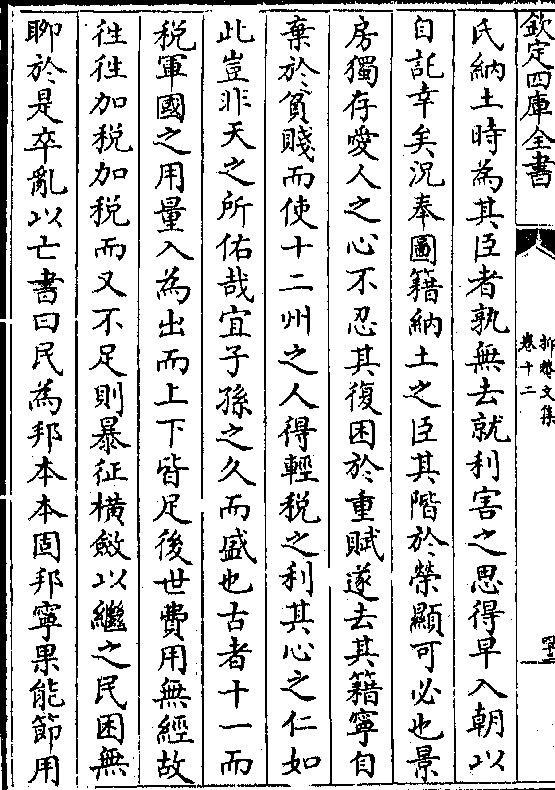 欽定四庫全書
抑菴文集
卷十二
氏納土時為其臣者孰無去就利害之思得早入朝以
自託幸矣況奉圖籍納土之臣其階於榮顯可必也景
房獨存愛人之心不忍其復困於重賦遂去其籍寧自
棄於貧賤而使十二州之人得輕稅之利其心之仁如
此豈非天之所佑哉宜子孫之久而盛也古者十一而
稅軍國之用量入為出而上下皆足後世費用無經故
徃徃加稅加稅而又不足則暴征橫斂以繼之民困無
聊於是卒亂以亡書曰民為邦本本固邦寧果能節用